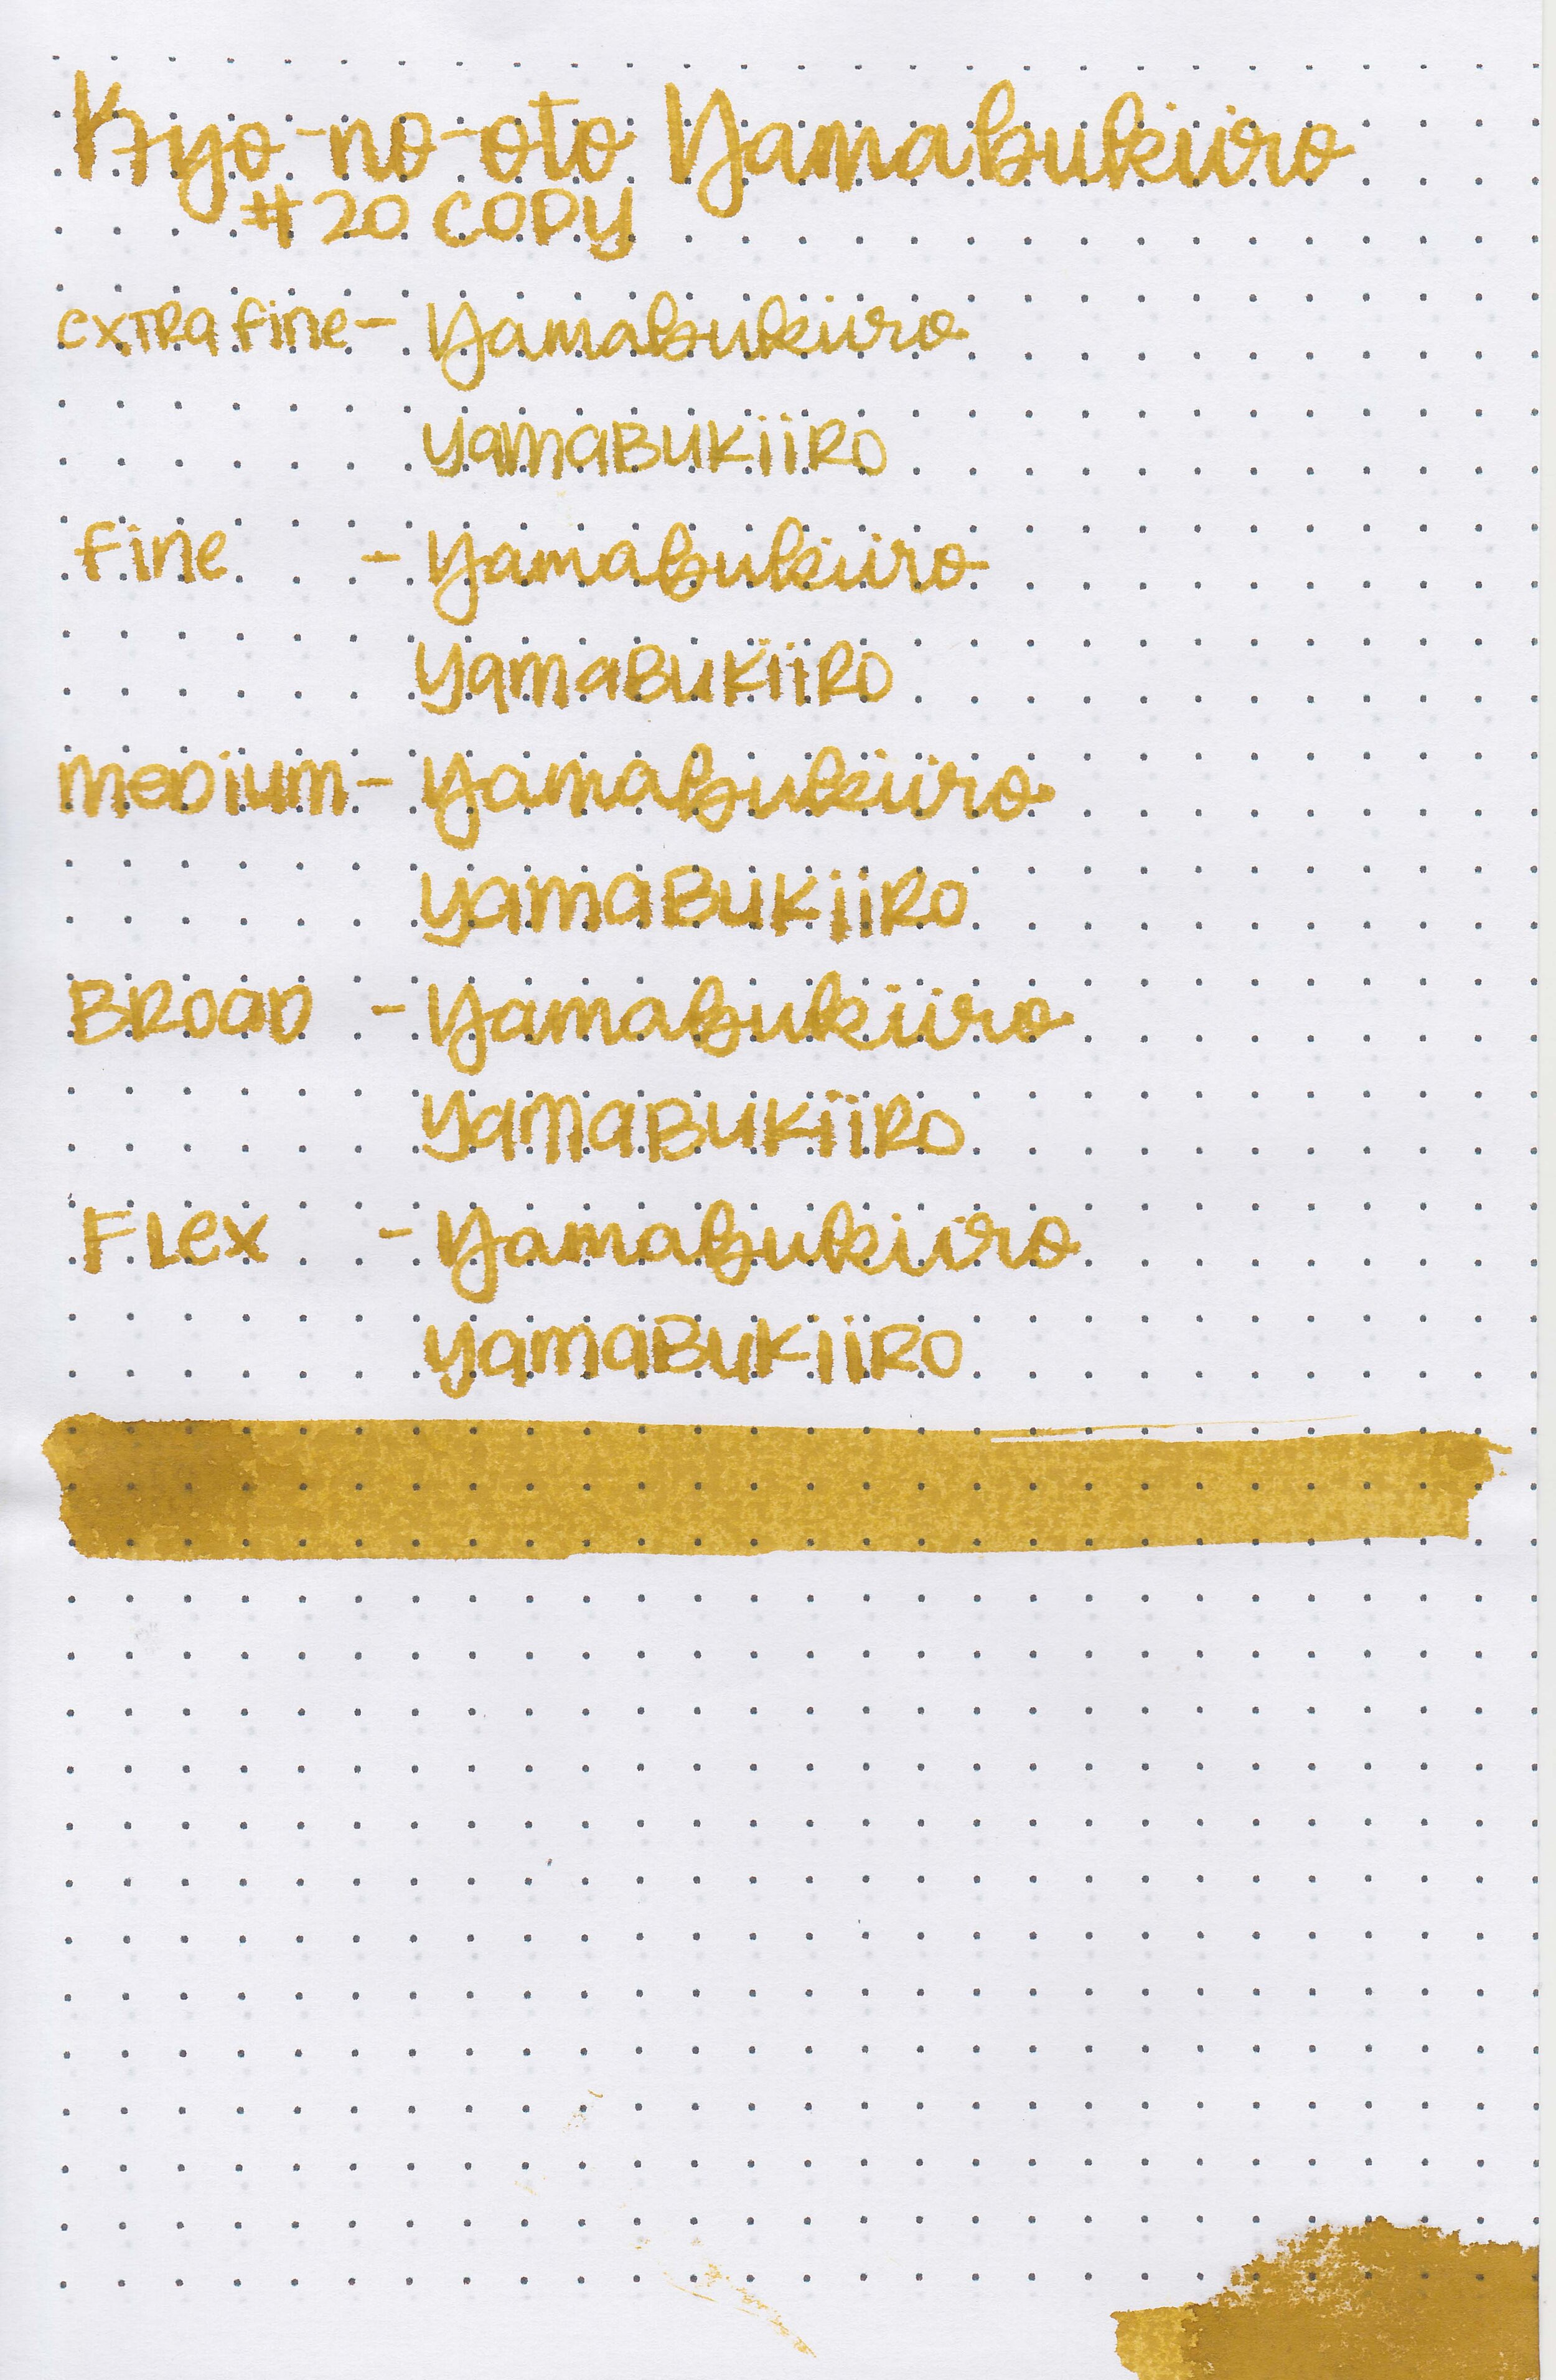 Kyo-no-oto Yamabukiiro
#20 COPY
extra fine - Yamabukiiro
YamaBUKiiRO
fine - Yamabukiiro
YamaBUKiiRO
meDium - Yamabukiiro
YamaBUKiiRO
BROaD - Yamabukiiro
YamaBUKiiRO
FLex - Yamabukiiro
YamaBUKiiRO